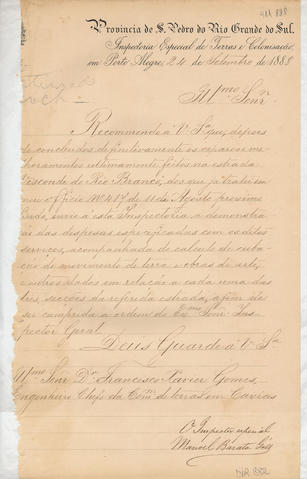 Provincia de S. Pedro do Rio Grande do Sul.
Inspectoria Especial de Terras e Colonisação,
em Porto Alegre, 24 de Setembro de 1888
Illmo Senr.
Recommendo a V. Sa que, depois
de concluidos definitivamente os reparos e me-
lhoramentos ultimamente feitos na estrada
Visconde do Rio Branco, dos quaes já tratei em
meu officio No 417 de 11 de Agosto proximo
findo, envie a esta Inspectoria a demonstra-
ção das despezas especificadas com os ditos
serviços, acompanhada do calculo de cuba-
ção do movimento de terra e obras de arte,
e outros dados em relação a cada uma das
tres secções da referida estrada, afim de
ser cumprida a ordem do Exmo Senr. Ins-
pector Geral.
Deus Guarde a V. Sa
Illmo Senr Dr Francisco Xavier Gomes,
Engenheiro Chefe da Comm de terras em Caxias
O Inspector especial
Manoel Barata Góes